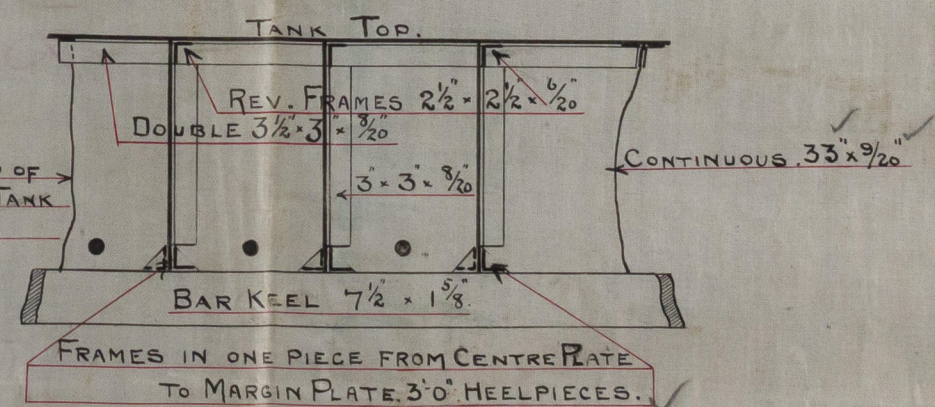 TANK TOP.
REV. FRAMES 2½" × 2½" × 6/20"
DOUBLE 3½" × 3" × 8/20"
CONTINUOUS. 33" × 9/20"
OF
TANK
3" × 3" × 8/20"
BAR KEEL 7½" × 1⅝".
FRAMES IN ONE PIECE FROM CENTRE PLATE
TO MARGIN PLATE. 3'-0" HEELPIECES.